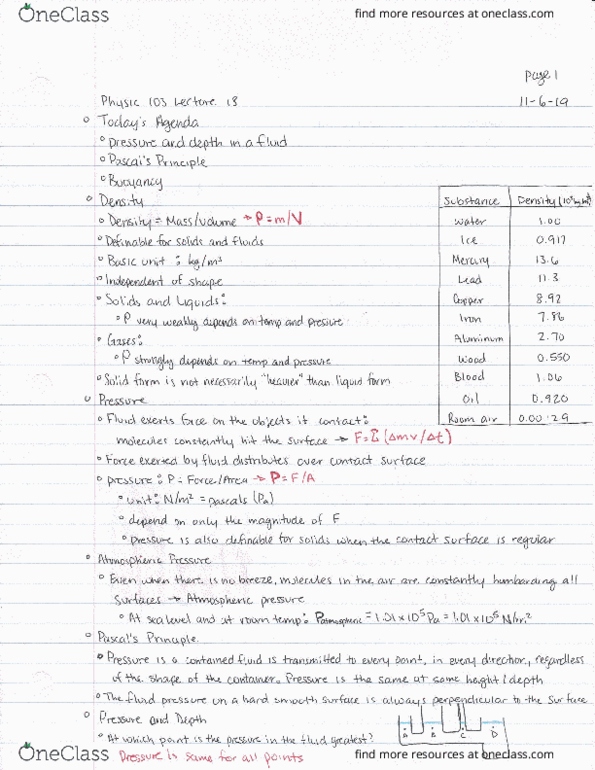 OneClass
find more resources at oneclass.com
page 1
Physic 103 Lecture 18
11-6-19
Today's Agenda
pressure and depth in a fluid
Pascal's Principle
Buoyancy
Density
Density = Mass/volume → ρ = m/V
Definable for solids and fluids
Basic unit : kg/m³
Independent of shape
Solids and Liquids:
ρ very weakly depends on temp and pressure
Gases:
ρ strongly depends on temp and pressure
Solid form is not necessarily "heavier" than liquid form
Substance Density (10³kg/m³)
water 1.00
Ice 0.917
Mercury 13.6
Lead 11.3
Copper 8.92
Iron 7.86
Aluminum 2.70
Wood 0.550
Blood 1.06
Oil 0.920
Room air 0.00129
Pressure
Fluid exerts force on the objects it contact:
molecules constantly hit the surface → F=Σ(Δmv/Δt)
Force exerted by fluid distributes over contact surface
pressure: P = Force/Area → P = F/A
unit: N/m² = pascals (Pa)
depend on only the magnitude of F
pressure is also definable for solids when the contact surface is regular
Atmospheric Pressure
Even when there is no breeze, molecules in the air are constantly bombarding all
surfaces → Atmospheric pressure
At sea level and at room temp: Patmospheric = 1.01x10⁵ Pa = 1.01x10⁵ N/m²
Pascal's Principle
Pressure is a contained fluid is transmitted to every point, in every direction, regardless
of the shape of the container. Pressure is the same at same height/depth
The fluid pressure on a hard smooth surface is always perpendicular to the surface
Pressure and Depth
At which point is the pressure in the fluid greatest?
A B C D
Pressure is same for all points
OneClass
find more resources at oneclass.com